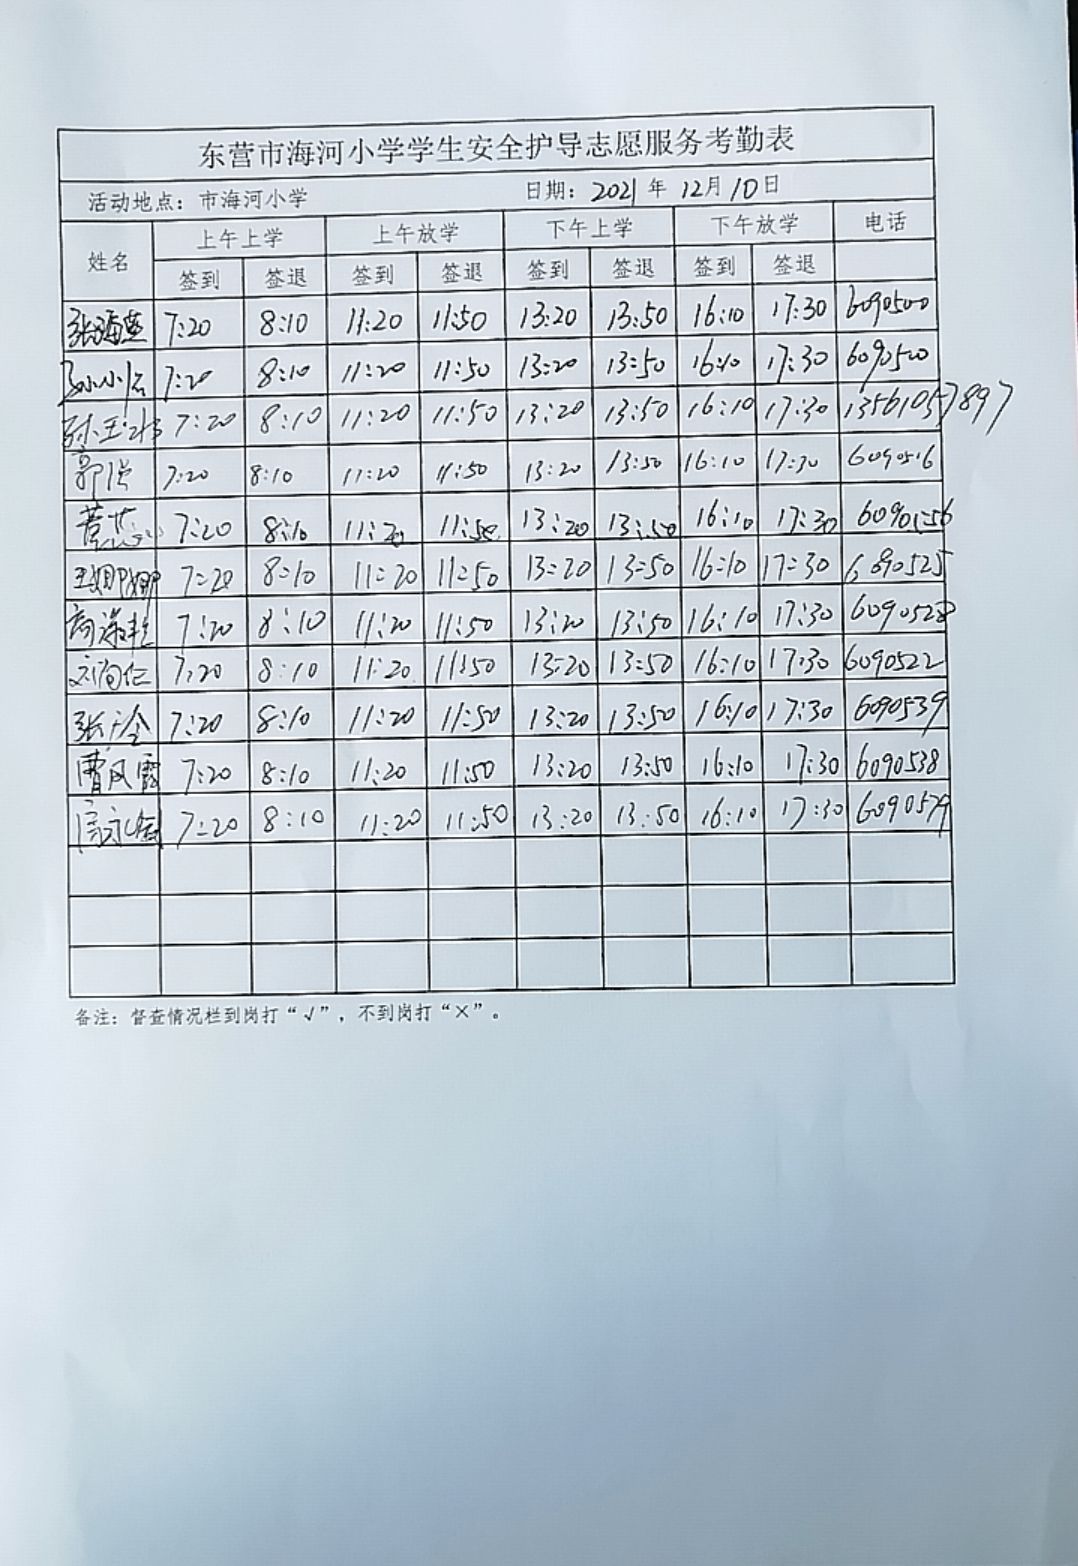 东营市海河小学学生安全护导志愿服务考勤表
活动地点：市海河小学 日期：2021年12月10日
姓名 上午上学 上午放学 下午上学 下午放学 电话
签到 签退 签到 签退 签到 签退 签到 签退
张海燕 7:20 8:10 11:20 11:50 13:20 13:50 16:10 17:30 6090500
孙小云 7:20 8:10 11:20 11:50 13:20 13:50 16:10 17:30 6090500
7:20 8:10 11:20 11:50 13:20 13:50 16:10 17:30 13561057897
7:20 8:10 11:20 11:50 13:20 13:50 16:10 17:30 6090516
7:20 8:10 11:20 11:50 13:20 13:50 16:10 17:30 6090556
王姗娜 7:20 8:10 11:20 11:50 13:20 13:50 16:10 17:30 6090525
7:20 8:10 11:20 11:50 13:20 13:50 16:10 17:30 6090528
7:20 8:10 11:20 11:50 13:20 13:50 16:10 17:30 6090522
7:20 8:10 11:20 11:50 13:20 13:50 16:10 17:30 6090539
曹风霞 7:20 8:10 11:20 11:50 13:20 13:50 16:10 17:30 6090538
7:20 8:10 11:20 11:50 13:20 13:50 16:10 17:30 6090579
备注：督查情况栏到岗打“√”，不到岗打“×”。